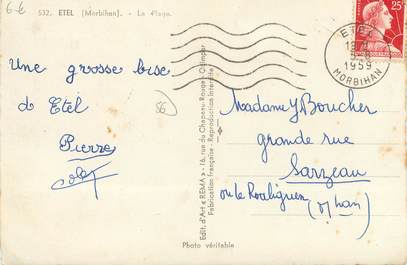 6-€
532. ETEL (Morbihan). - La Plage.
Une grosse bise
d Etel
Pierre
56
Edit. d'Art « REMA » - 16, rue du Chapeau-Rouge, Quimper
Fabrication française - Reproduction interdite
Photo véritable
25F
ETEL
1959
MORBIHAN
Madame Y Boucher
grande rue
Sarzeau
ou le Roaliguen